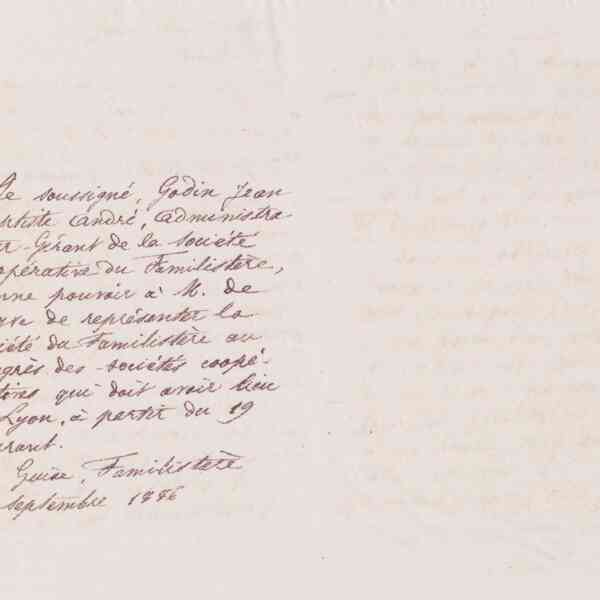 Je soussigné, Godin Jean
ptiste André, administra-
ur-Gérant de la Société
opérative du Familistère,
nne pouvoir à M. de
de représenter la
iété du Familistère au
grès des sociétés coopé-
tives qui doit avoir lieu
Lyon, à partir du 19
urant.
Guise, Familistère
septembre 1886